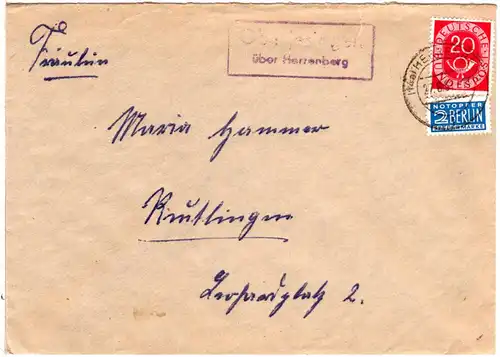 Fräulein
über Herrenberg
20
DEUTSCHE BUNDESPOST
NOTOPFER
2 BERLIN
STEUERMARKE
Maria Hammer
Reutlingen
Leonhardplatz 2.